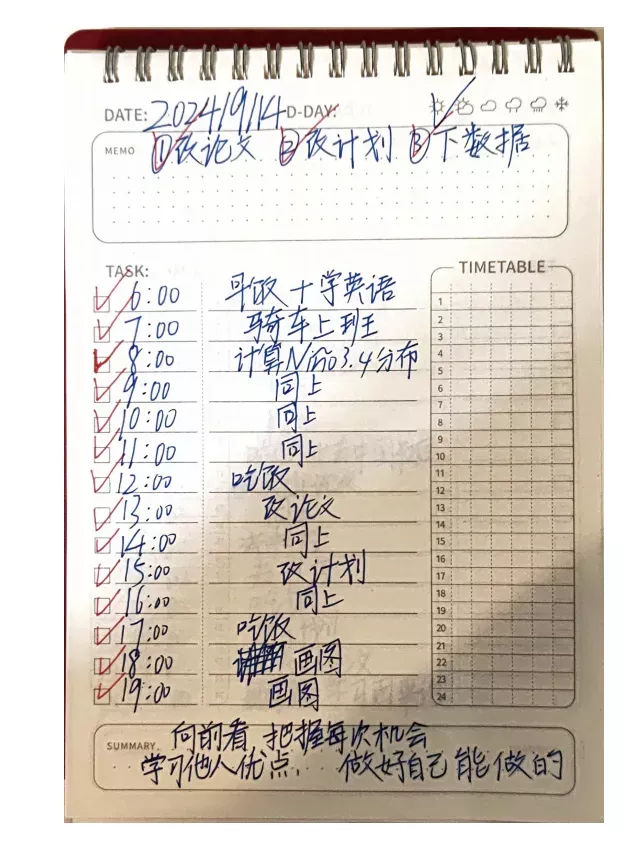 DATE: 2024/9/14 D-DAY:
MEMO ①改论文 ②改计划 ③下数据
TASK:
TIMETABLE
6:00 早饭十学英语
7:00 骑车上班
8:00 计算 3.4分布
9:00 同上
10:00 同上
11:00 同上
12:00 吃饭
13:00 改论文
14:00 同上
15:00 改计划
16:00 同上
17:00 吃饭
18:00 画图
19:00 画图
1
2
3
4
5
6
7
8
9
10
11
12
13
14
15
16
17
18
19
20
21
22
23
24
SUMMARY 向前看,把握每次机会
学习他人优点, 做好自己能做的